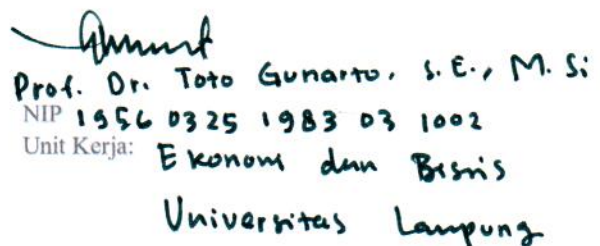 Prof. Dr. Toto Gunarto, S.E., M.Si
NIP 1956 0325 1983 03 1002
Unit Kerja: Ekonomi dan Bisnis
Universitas Lampung